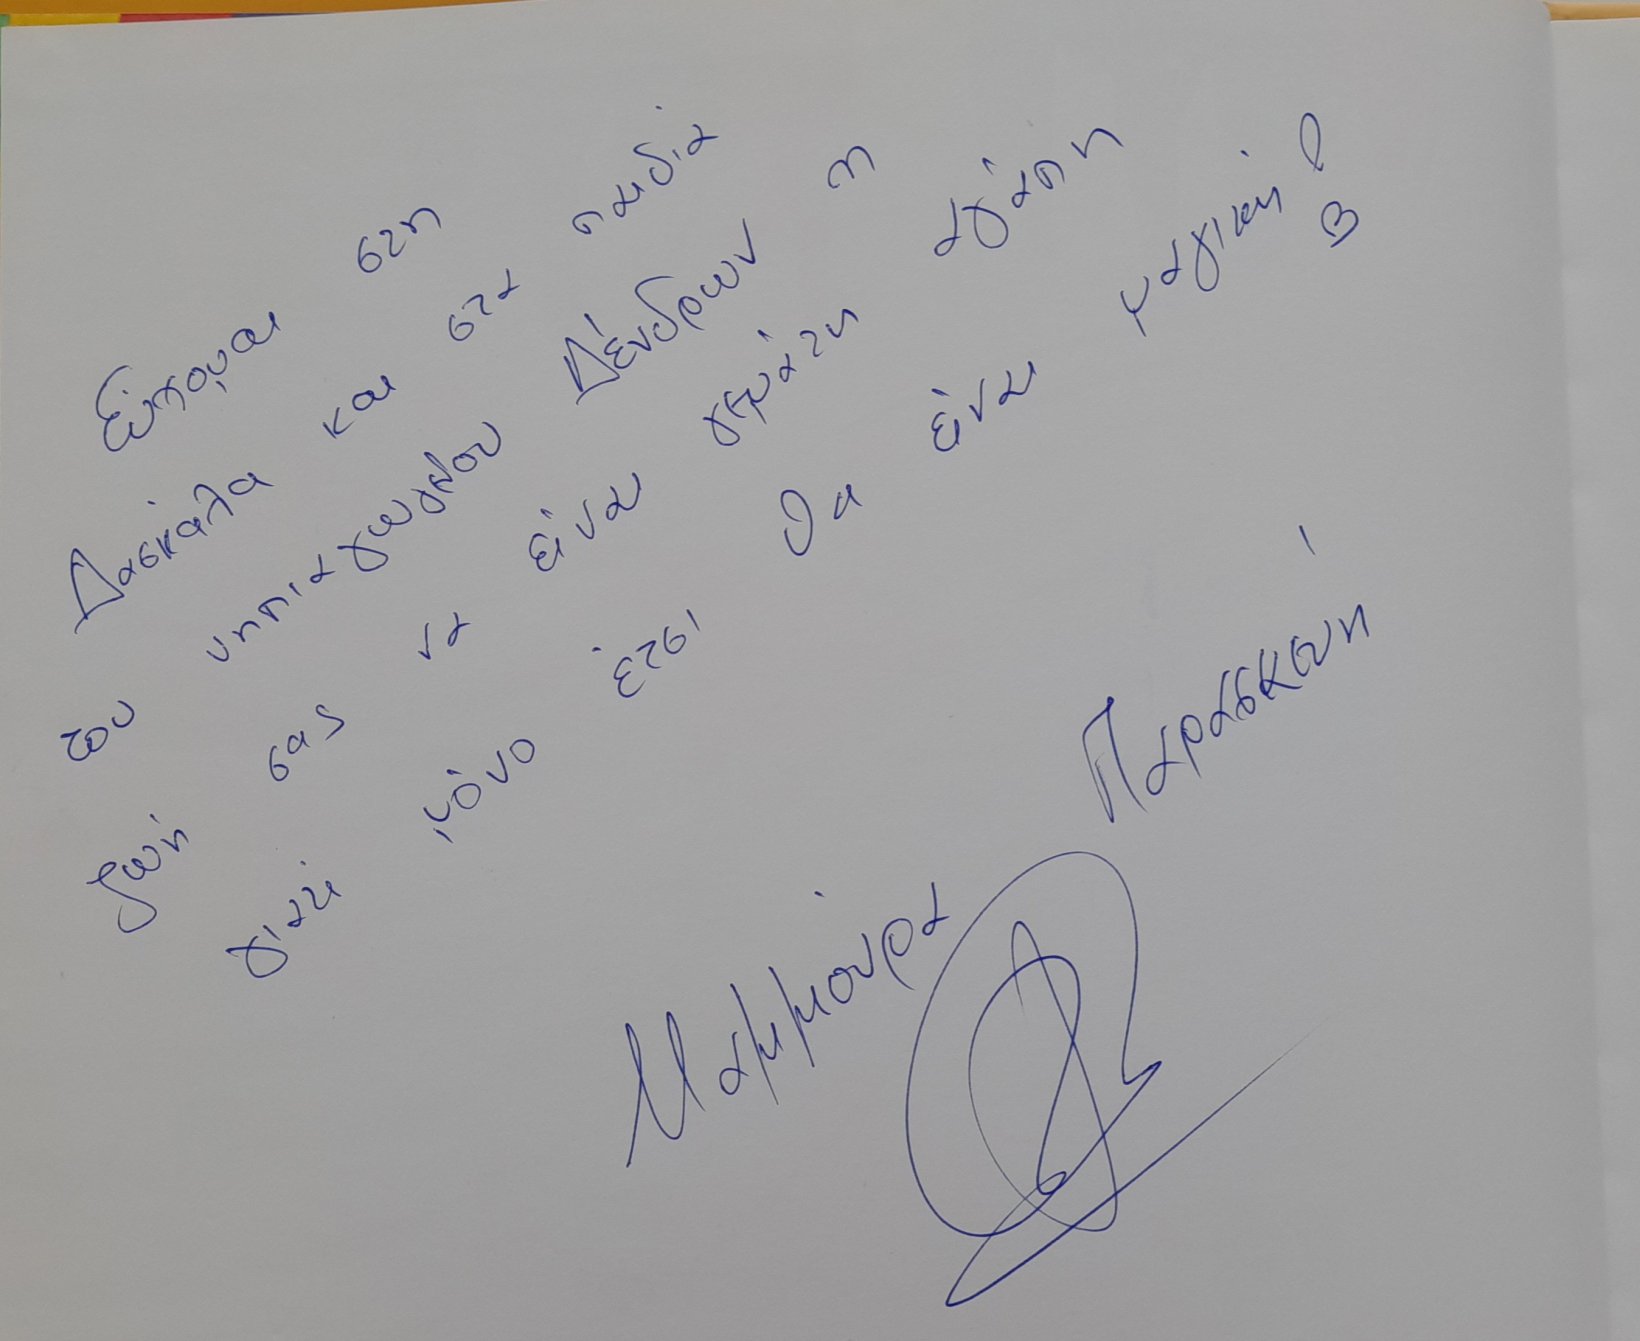 Εύχομαι στη
Δασκάλα και στα παιδιά
του νηπιαγωγείου Δένδρων η
ζωή σας να είναι γεμάτη αγάπη
γιατί μόνο έτσι θα είναι μαγική!
Μαμμούρα Παρασκευή